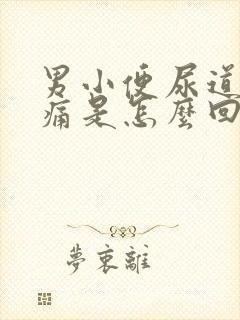 男小便尿道
痛是怎麼回
夢裏離